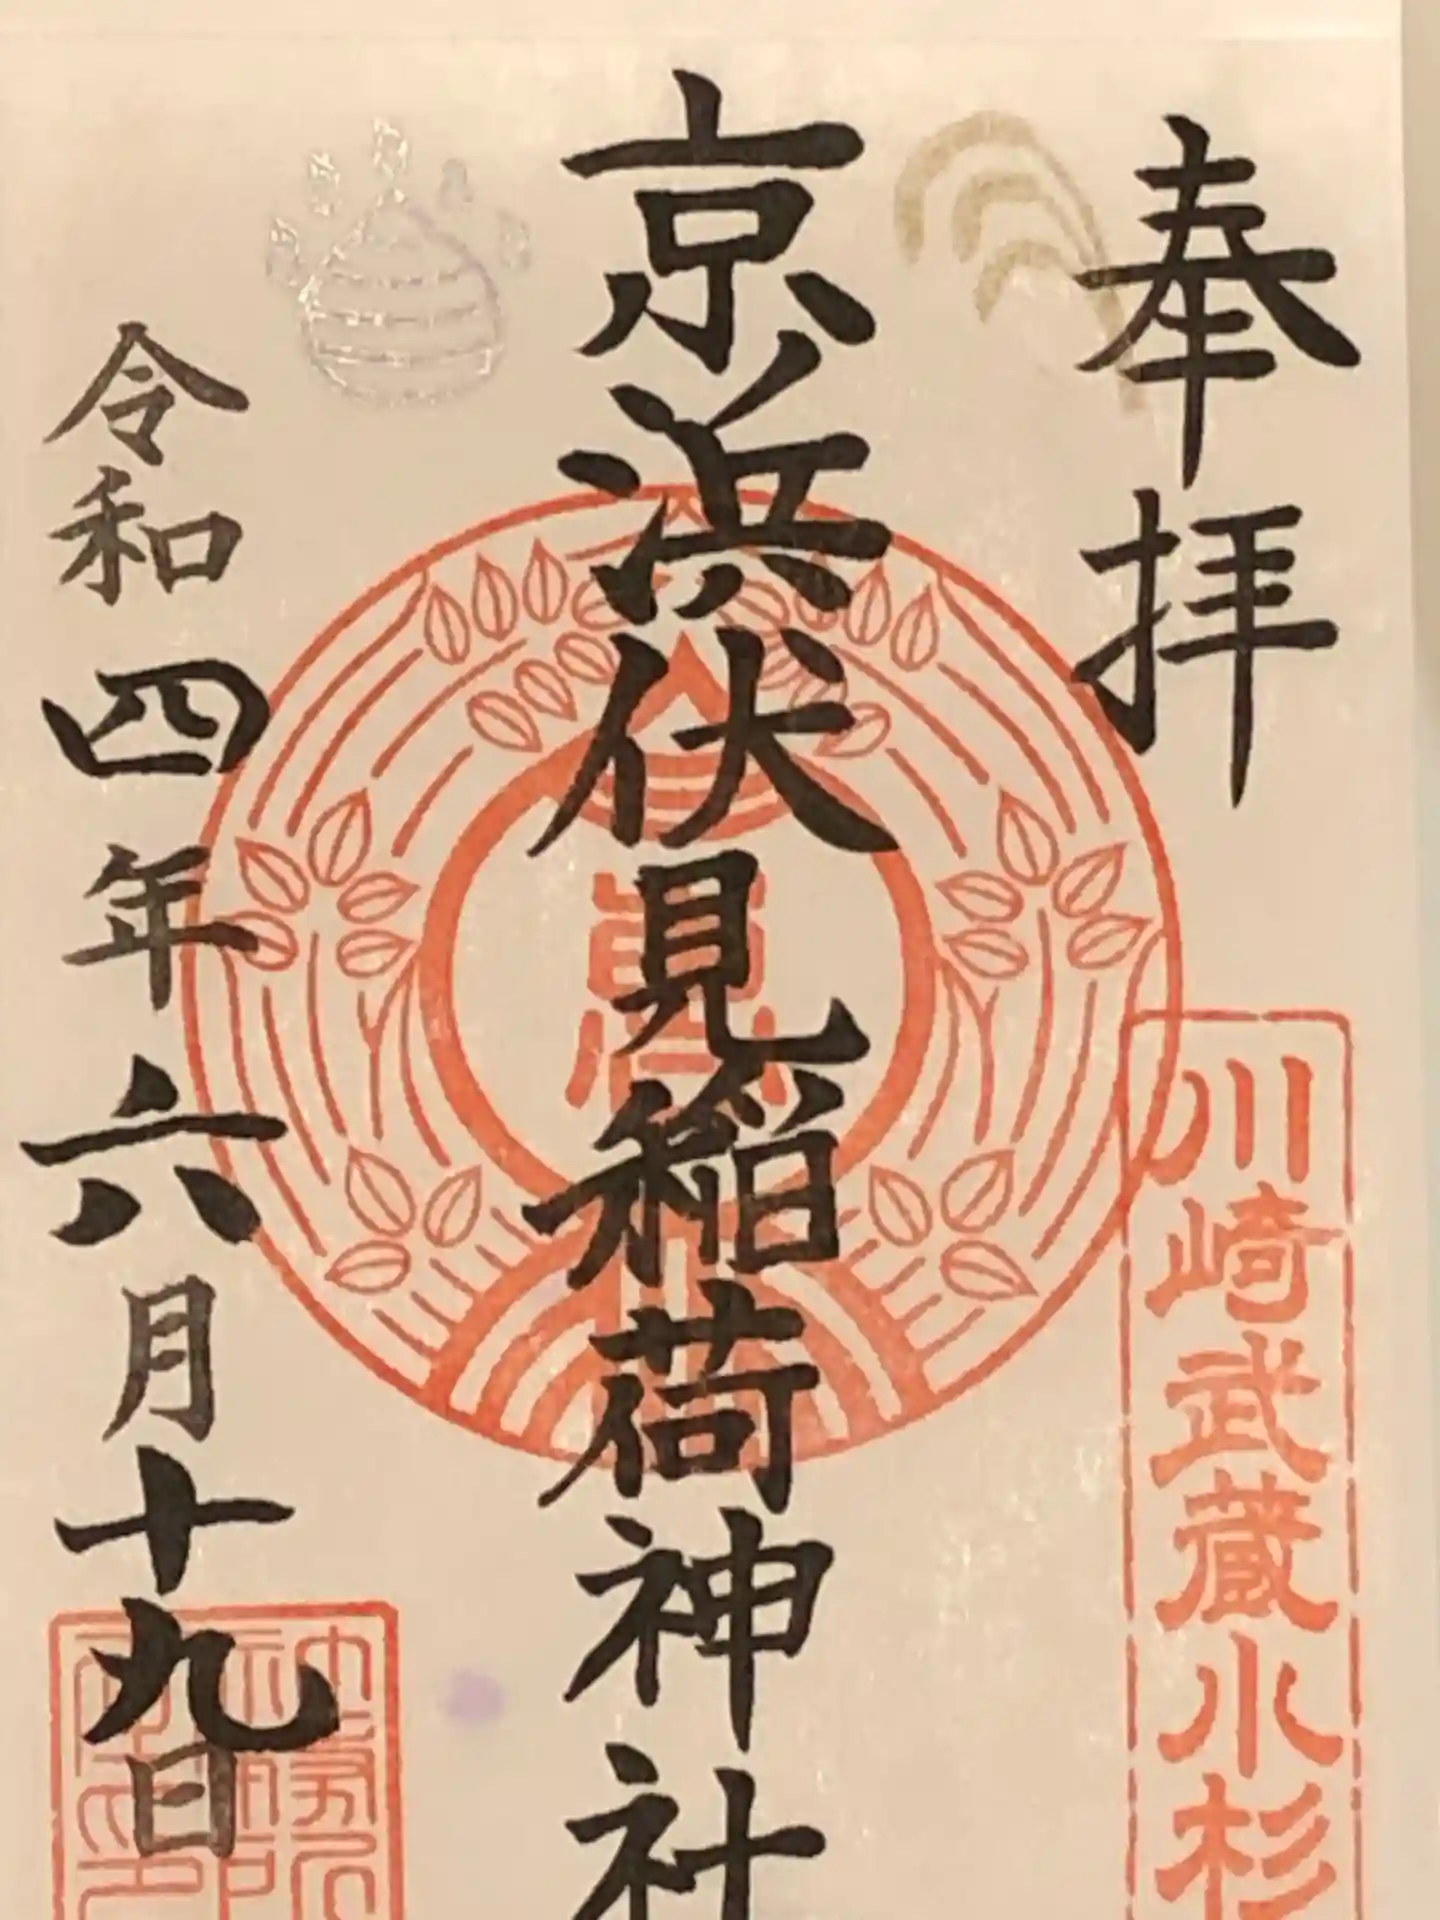 奉拝
川崎武蔵小杉
京浜伏見稲荷神社
令和四年六月十九日